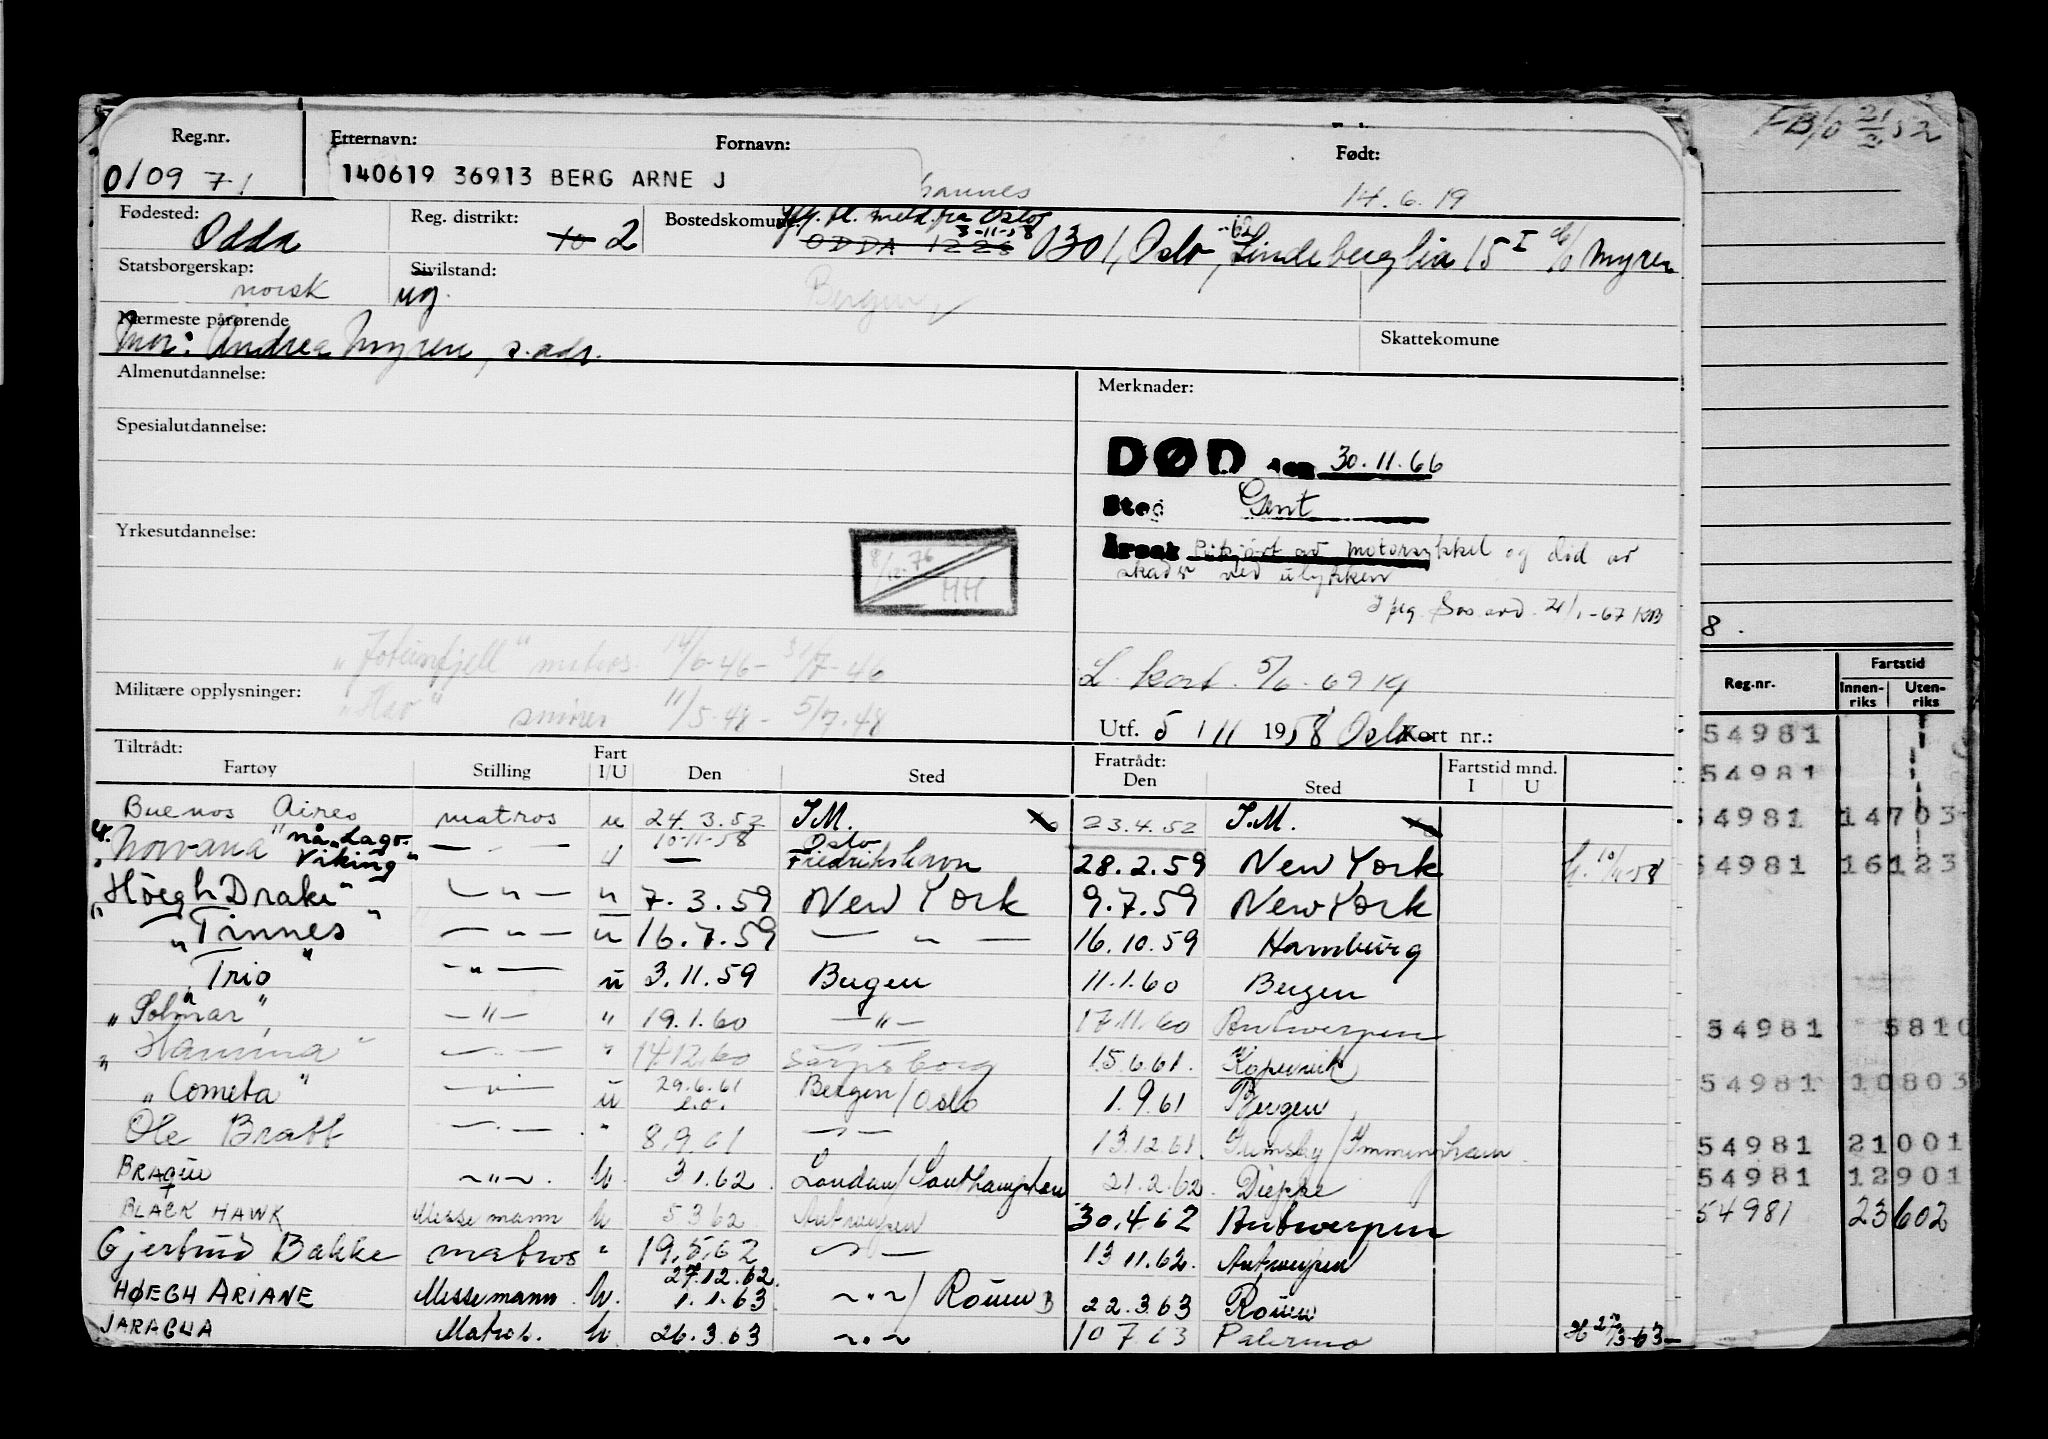 FBib 21/2 52
Reg.nr. Etternavn: Fornavn: Født:
0109 71 140619 36913 BERG ARNE J hannes 14.6.19
Fødested: Reg. distrikt: Bostedskomune: fl. meld. fra Oslo 3-11-58
Odda 10 2 ODDA 1226 0301, Oslo, Lindeberglia 15 I c/o Myren
Statsborgerskap: Sivilstand:
norsk ug. Bergen
Nærmeste pårørende Skattekomune
Mor: Andrea Myren, s. adr.
Almenutdannelse: Merknader:
Spesialutdannelse:
DØD den 30.11.66
Sted Gent
Yrkesutdannelse:
8/12.76 HH
Årsak Påkjørt av motorsykkel og død av
skader ved ulykken
21/1-67 KB
8.
"Jotunfjell" matros 14/6-46 - 31/7-46
L. kort 5/6-69
Militære opplysninger: "Hav" smører 11/5.48 - 5/7.48
Utf. 5 / 11 1958 Oslo Kort nr.:
Reg.nr. Fartstid Innen-riks Uten-riks
Tiltrådt: Fratrådt: Fartstid mnd.
Fartøy Stilling Fart I/U Den Sted Den Sted I U
Buenos Aires matros u 24.3.52 I.M. 23.4.52 I.M.
"Norvana" nå "Lago Viking" — " — u 10-11-58 Oslo Fredrikshavn 28.2.59 New York
"Höegh Drake" — " — " 7.3.59 New York 9.7.59 New York
"Tinnes" — " — u 16.7.59 — " — 16.10.59 Hamburg
"Trio" — " — u 3.11.59 Bergen 11.1.60 Bergen
"Solmar" — " — " 19.1.60 — " — 17.11.60 Antwerpen
"Hamina" — " — " 14.12.60 Sarpsborg 15.6.61. Kopervik
"Cometa" — " — u 29.6.61 e.o. Bergen/Oslo 1.9.61 Bergen
Ole Bratt — " — " 8.9.61 — " — 13.12.61. Grimsby/Immingham
BRAGUE — " — u. 3.1.62. London/Southampton 21.2.62. Dieppe
BLACK HAWK Messemann u 5.3.62 Antwerpen 30.4.62 Antwerpen
Gjertrud Bakke matros " 19.5.62 — " — 13.11.62. Antwerpen
HØEGH ARIANE Messemann u. 27.12.62. 1.1.63. — " — / Rouen B 22.3.63 Rouen
JARAGUA Matros. u 26.3.63 — " — 10.7.63 Palermo H 27/3-63-
54981
54981
54981 14703
54981 16123
54981 5810
54981 10803
54981 21001
54981 12901
54981 23602